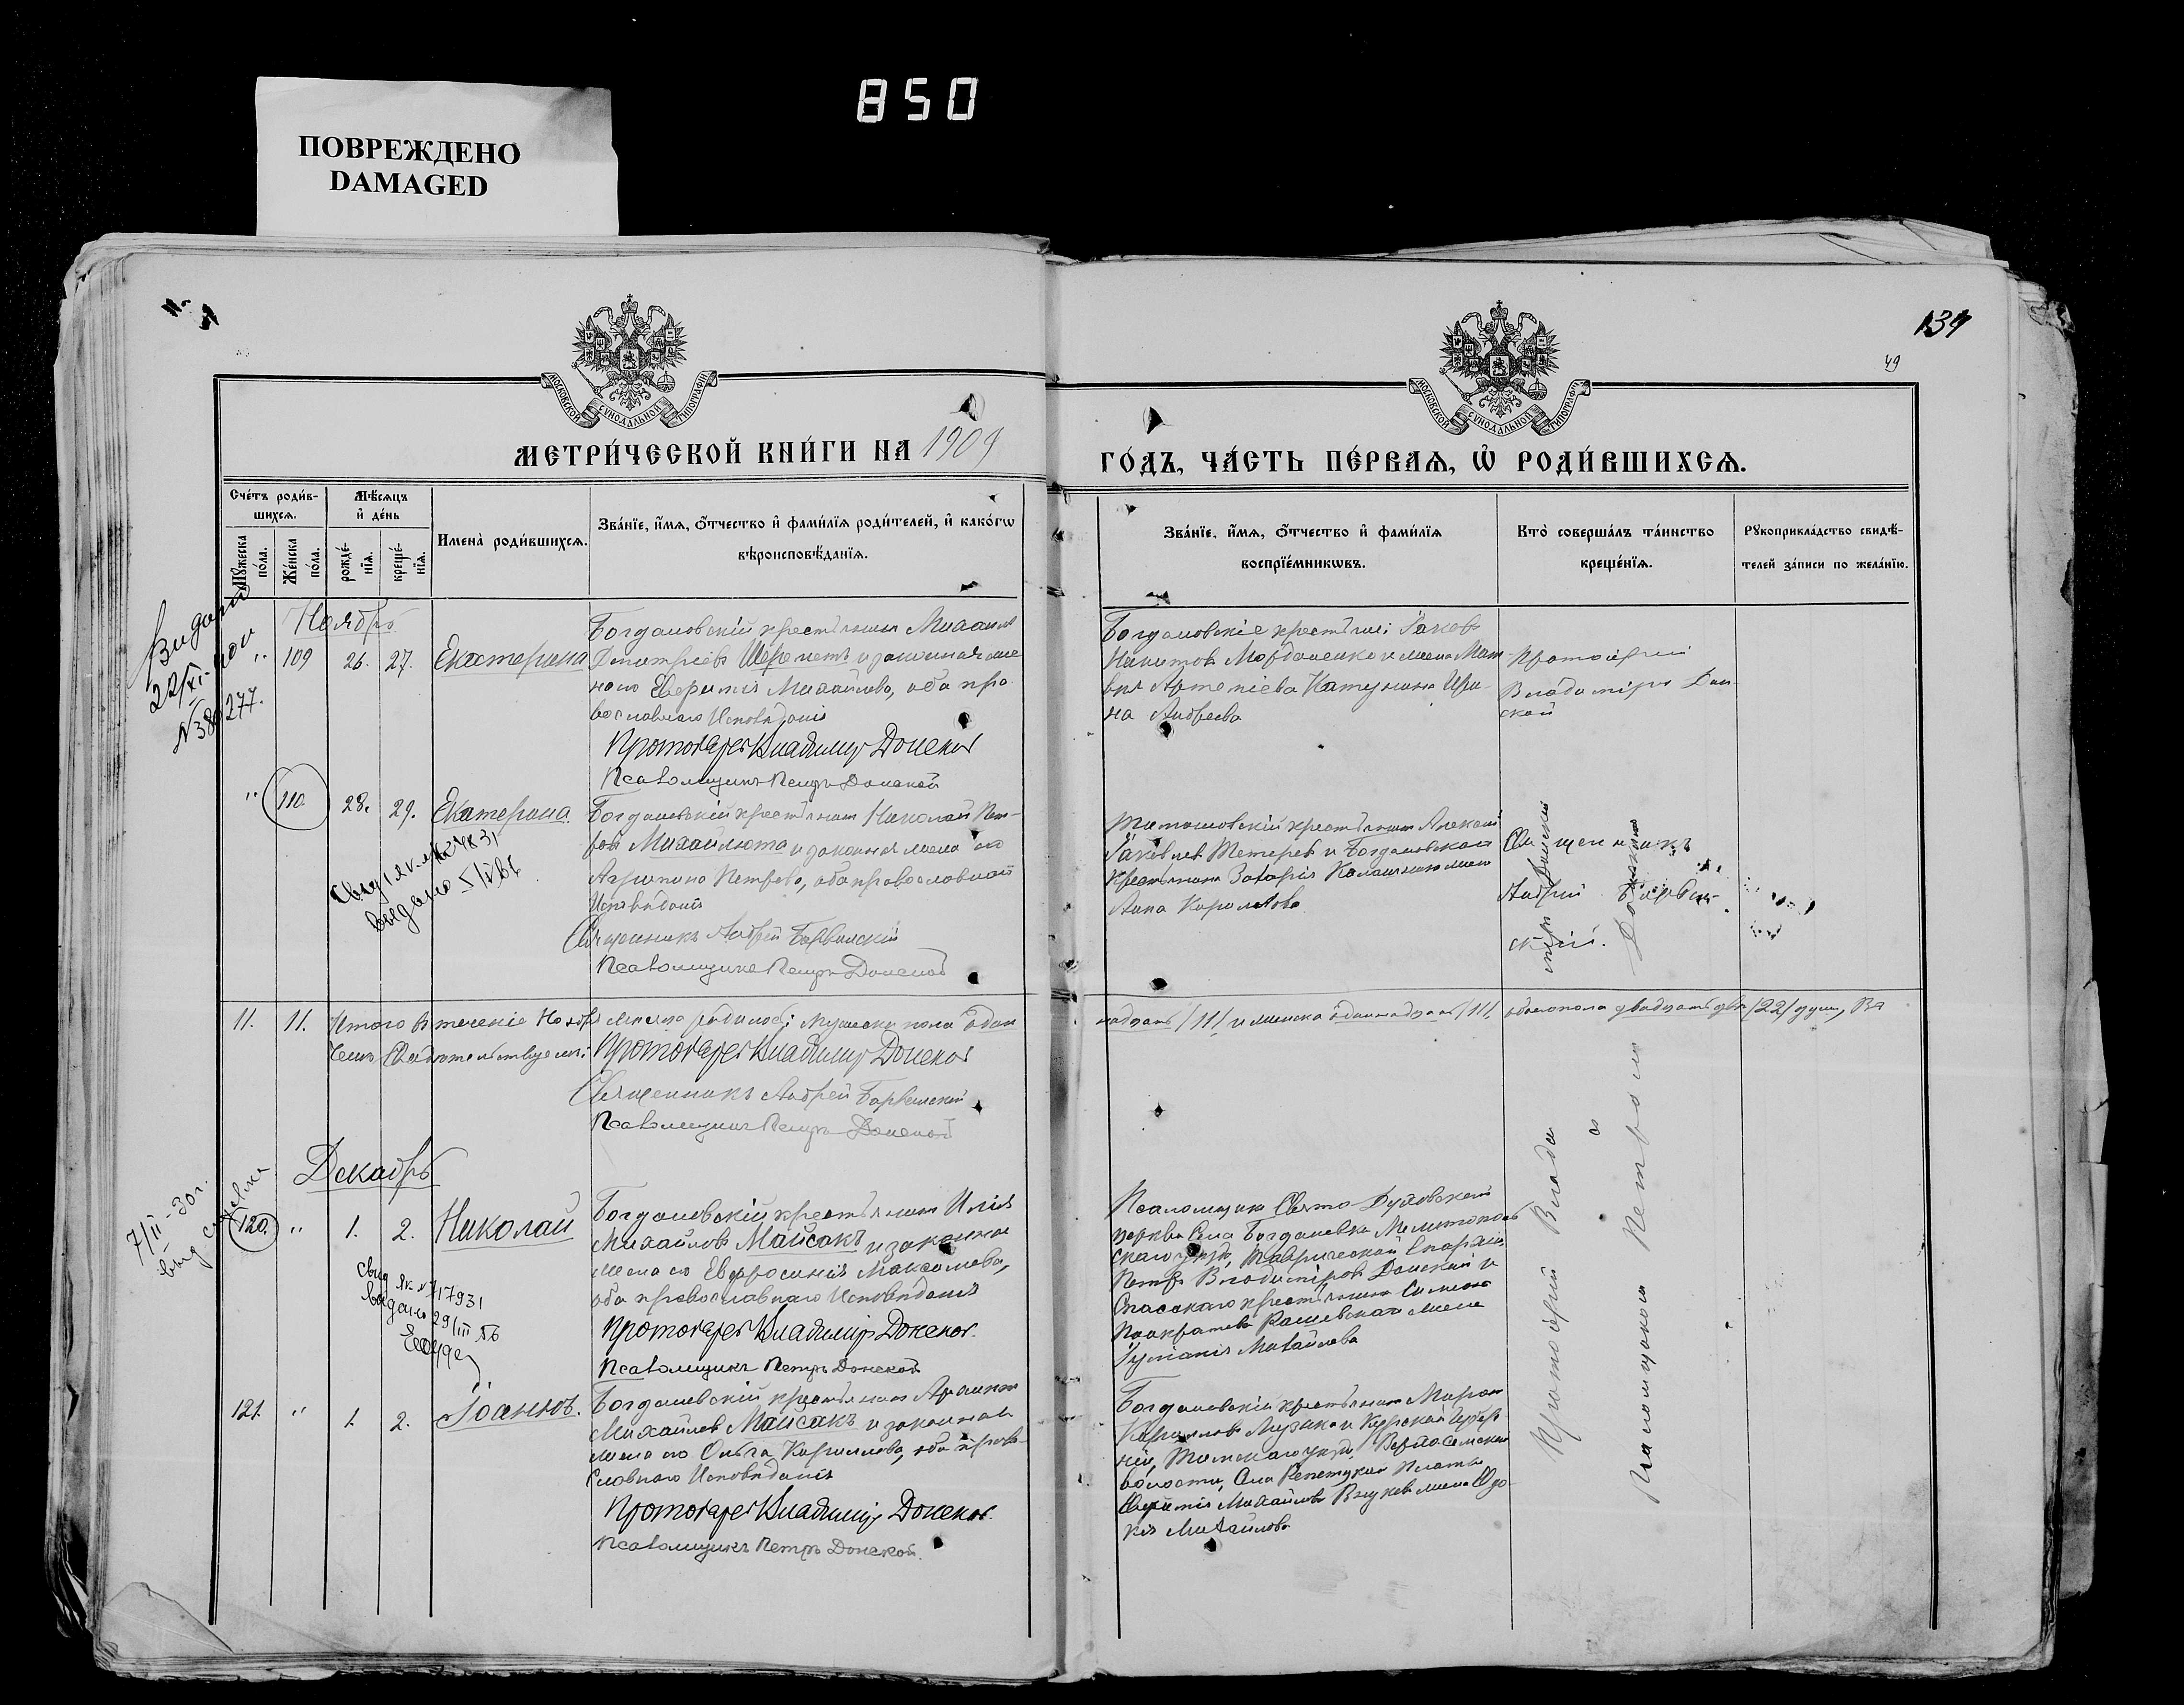 850
ПОВРЕЖДЕНО
DAMAGED
134
49
МОСКОВСКОЙ СѴНОДАЛЬНОЙ ТИПОГРАФІИ
МОСКОВСКОЙ СѴНОДАЛЬНОЙ ТИПОГРАФІИ
МЕТРИ́ЧЕСКОЙ КНИ́ГИ НА 1909
ГО́ДЪ, ЧА́СТЬ ПЕ́РВАЯ, Ѿ РОДИ́ВШИХСЯ.
Сче́тъ роди́в-
шихся.
Мѣ́сяцъ
и҆ де́нь
Мꙋ́жеска
по́ла.
Же́нска
по́ла.
рожде́-
нїя.
креще́-
нїя.
Имена̀ роди́вшихся.
Зва́нїе, и҆́мя, ѻ҆́тчество и҆ фами́лїя роди́телей, и҆ како́гѡ
вѣроисповѣ́данїя.
Зва́нїе, и҆́мя, ѻ҆́тчество и҆ фами́лїя
воспрїе́мникѡвъ.
Кто̀ соверша́лъ та́инство
креще́нїя.
Рꙋкоприкла́дство свидѣ́-
телей за́писи по жела́нїю.
Ноябрь
" 109 26. 27. Екатерина
Богдановскій крестьянинъ Михаилъ
Дмитріевъ Шереметъ и законная же
на его Евфимія Михайлова, оба пра
вославнаго Исповѣданія
Протоіерей Владимиръ Донской
Псаломщикъ Петръ Донской
Богдановскіе крестьяне: Іаковъ
Никитовъ Мордаченко и жена Мат
вея Артеміева Катунина Ири
на Андреева
Протоіерей
Владиміръ Дон-
ской
277.
" 110 28. 29. Екатерина.
Богдановскій крестьянинъ Николай Пет-
ровъ Михайлюта и законная жена его
Агрипина Петрова, оба православнаго
Исповѣданія
Священникъ Андрей Барвинскій
Псаломщикъ Петръ Донской
крестьянинъ Алексѣй
Іаковлевъ Тетеревъ и Богдановскаго
крестьянина Захарія жена
Анна
Священникъ
Андрей Барвин-
скій.
11. 11. Итого въ теченіе Ноября мѣсяца родилось: мужеска пола один
надцать /11/ и женска одиннадцать /11/, обоегопола двадцать два /22/ душъ, въ
чемъ свидѣтельствуемъ:
Протоіерей Владимиръ Донской
Священникъ Андрей Барвинскій
Псаломщикъ Петръ Донской
Декабрь
120. " 1. 2. Николай
Богдановскій крестьянинъ Илія
Михайловъ Майсакъ и законная
жена его Евфросинія Максимова,
оба православнаго Исповѣданія
Протоіерей Владимиръ Донской.
Псаломщикъ Петръ Донской
Псаломщикъ Свято-Духовской
церкви села Богдановки Мелитополь
скаго уѣзда, Таврической Епархіи
Петръ Владиміровъ Донской и
Спасскаго крестьянина Симеона
Панкратева жена
Михайлова
121. " 1. 2. Іоаннъ.
Богдановскій крестьянинъ
Михайловъ Майсакъ и законная
жена его Ольга Кириллова, оба право-
славнаго Исповѣданія
Протоіерей Владимиръ Донской.
Псаломщикъ Петръ Донской.
Богдановскій крестьянинъ Миронъ
Кирилловъ Музыка и Курской Губер
ніи, уѣзда,
волости, села
Михайлова жена
Михайлова
Протоіерей Владиміръ Донской
съ
Псаломщикомъ Петромъ Донскимъ